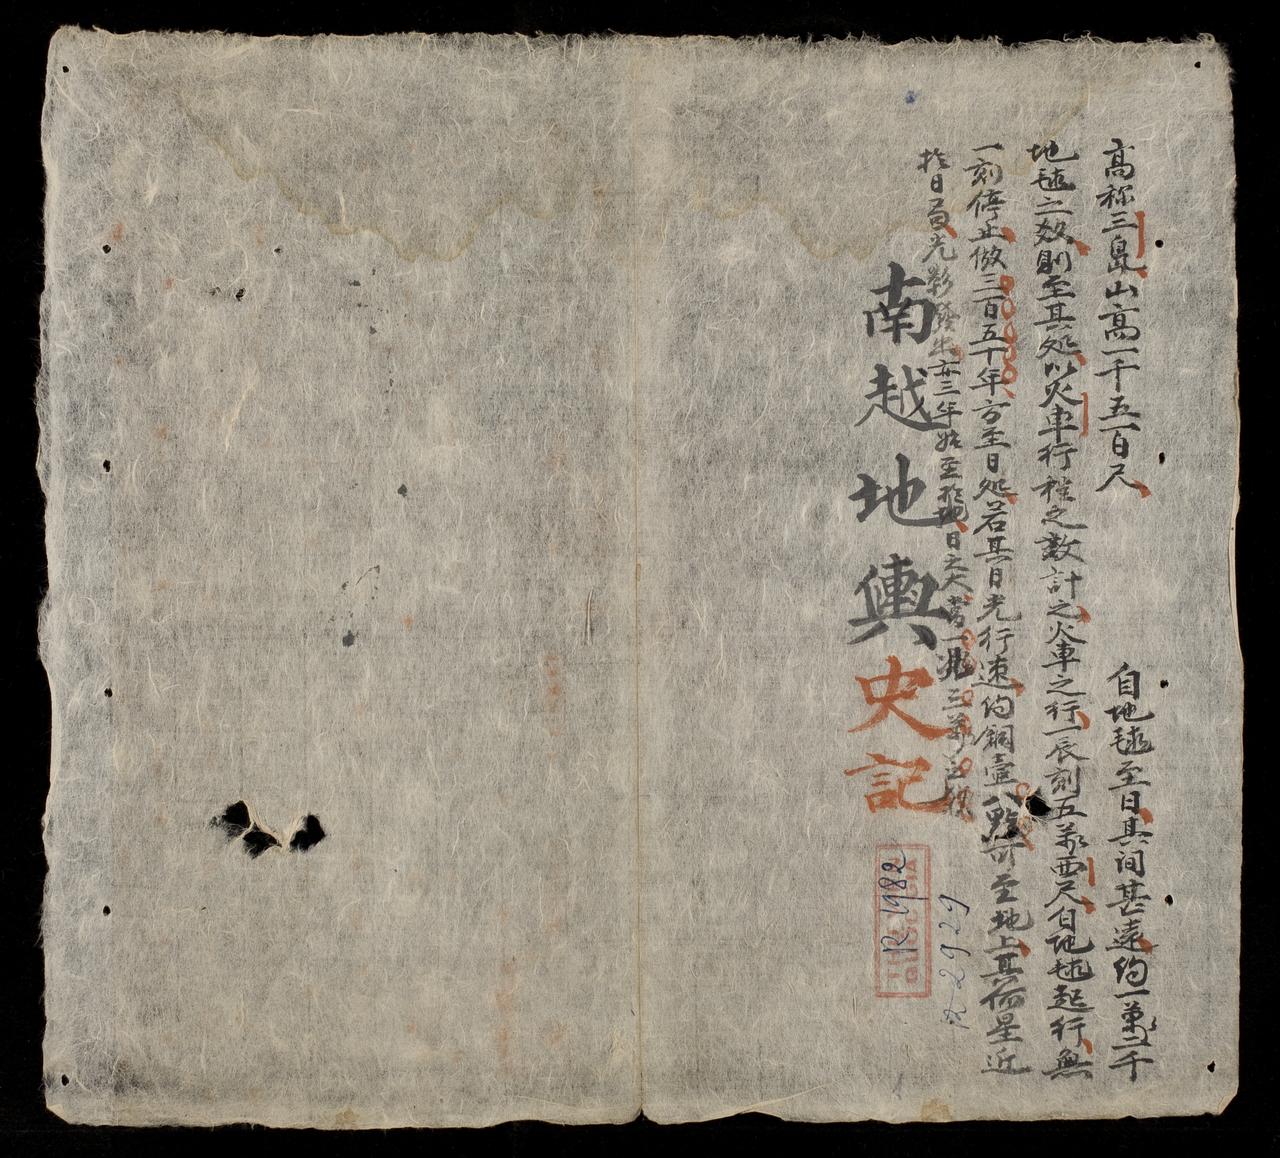 高称三島山高一千五百尺　自地毬至日其间甚遠約一萬二千
地毬之数則至其処以火車行程之数計之火車之行一辰刻五萬西尺自地毬起行無
一刻停止做三百五十年方至日処若其日光行速約銅壺八可至地上其何星近
於日局光影發出亦三年始至於地日之大當一兆三萬
南越地輿史記
R.1982
R 2929